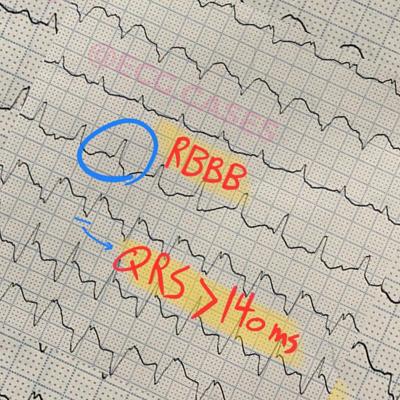 @ECG.CASES
RBBB
QRS > 140 ms